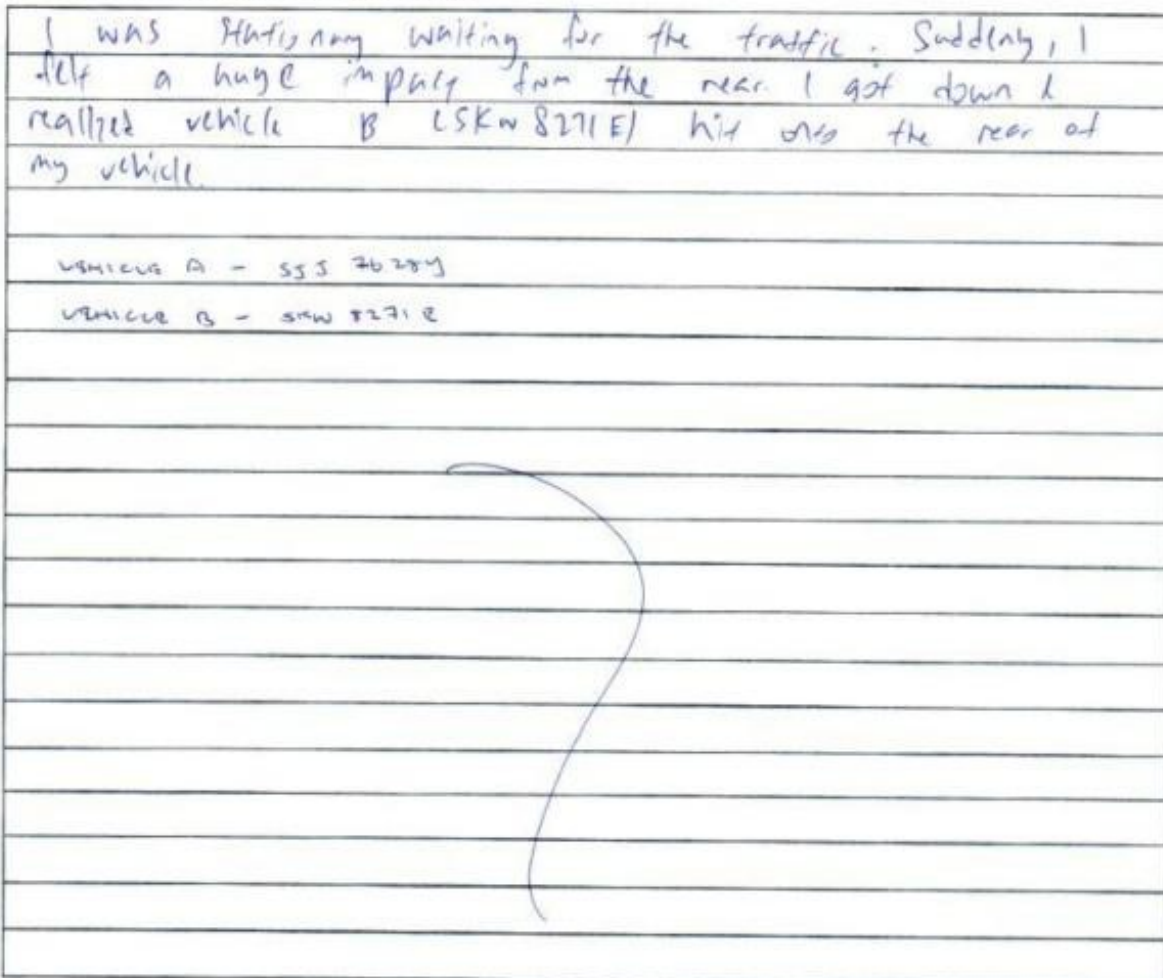 I was stationary waiting for the traffic. Suddenly, I
felt a huge impact from the rear. I got down &
realized vehicle B (SKW 8271E) hit onto the rear of
my vehicle.
VEHICLE A - SJJ 7628Y
VEHICLE B - SKW 8271E